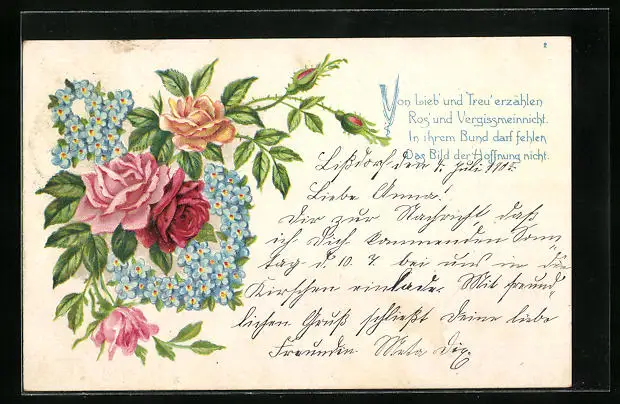 2
Von Lieb' und Treu' erzählen
Ros' und Vergissmeinnicht.
In ihrem Bund darf fehlen
Das Bild der Hoffnung nicht.
den Juli
Liebe Anna!
Dir zur Nachricht, daß
ich Dich kommenden Sonn-
tag d. 10. 7. bei uns in die
Kirschen einlade. Mit freund-
lichen Gruß schließt Deine liebe
Freundin Meta